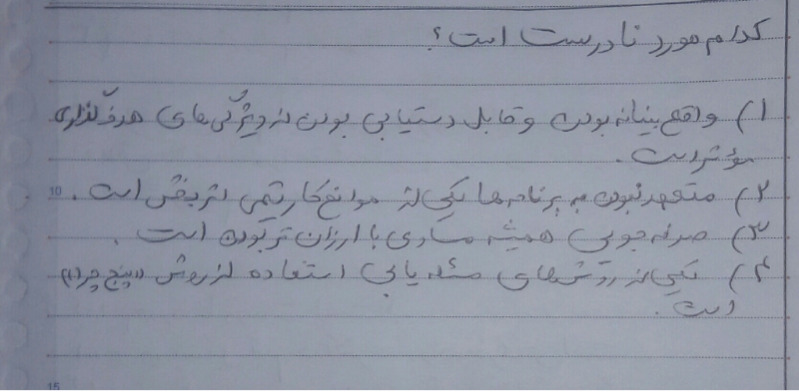 کدام مورد نادرست است؟
۱) واقع بینانه بودن و قابل دستیابی بودن از ویژگی های هدف گذاری
مؤثر است.
۲) متعهد نبودن به برنامه ها یکی از موانع کار تیمی اثربخش است.
10
۳) صرفه جویی همیشه مساوی با ارزان تر بودن است.
۴) یکی از روش های مسئله یابی استفاده از روش «پنج چرا»
است.
15